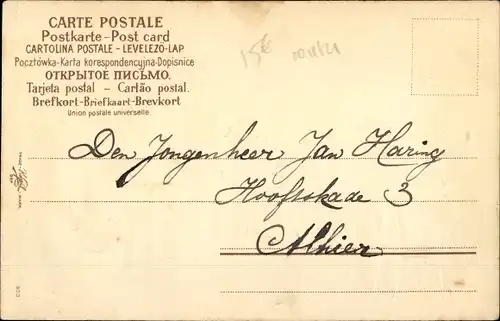 CARTE POSTALE
Postkarte-Post card
CARTOLINA POSTALE - LEVELEZŐ-LAP
Pocztówka-Karta korespondencyjna-Dopisnice
ОТКРЫТОЕ ПИСЬМО.
Tarjeta postal - Cartão postal.
Brefkort-Briefkaart-Brevkort
Union postale universelle.
15€
Den Jongenheer Jan Haring
Hooftskade 3
Alhier